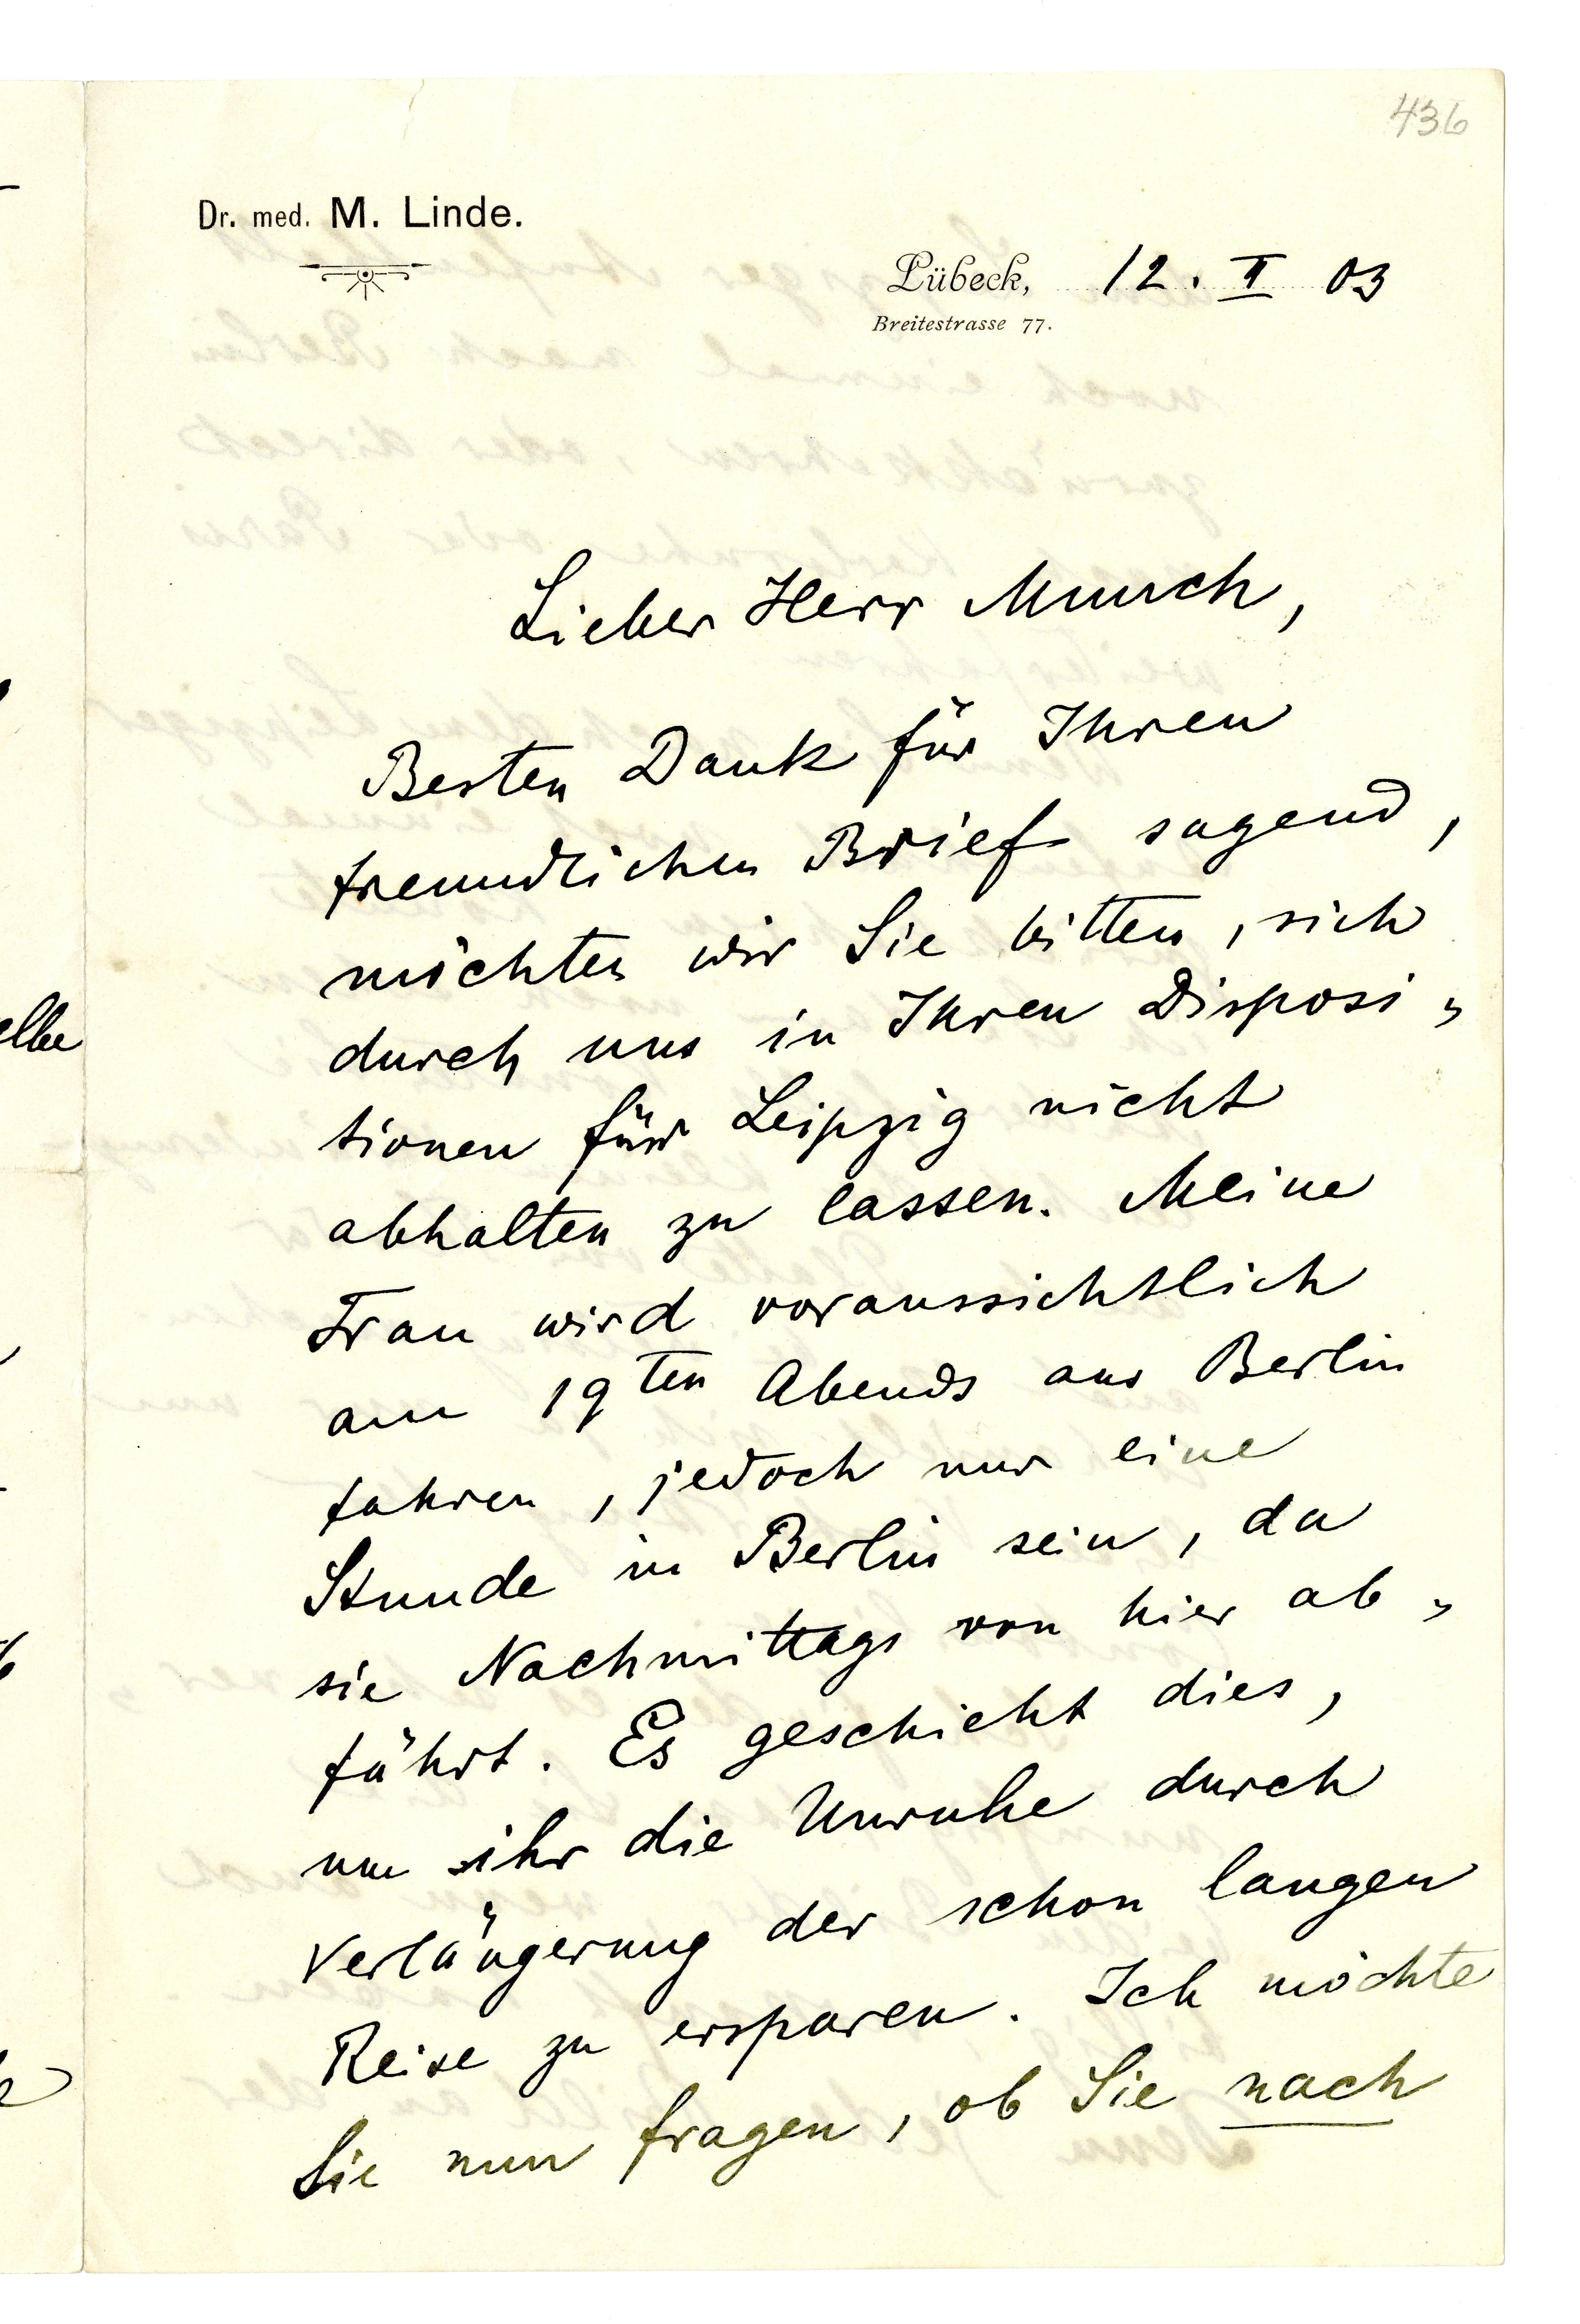 436
Dr. med. M. Linde.
Lübeck, 12. II 03
Breitestrasse 77.
Lieber Herr Munch,
Besten Dank für Ihren
freundlichen Brief sagend,
möchten wir Sie bitten, sich
durch uns in Ihren Disposi-
tionen für Leipzig nicht
abhalten zu lassen. Meine
Frau wird voraussichtlich
am 19ten Abends aus Berlin
fahren, jedoch nur eine
Stunde in Berlin sein, da
sie Nachmittags von hier ab-
fährt. Es geschieht dies,
um ihr die Unruhe durch
Verlängerung der schon langen
Reise zu ersparen. Ich möchte
Sie nun fragen, ob Sie nach
elbe